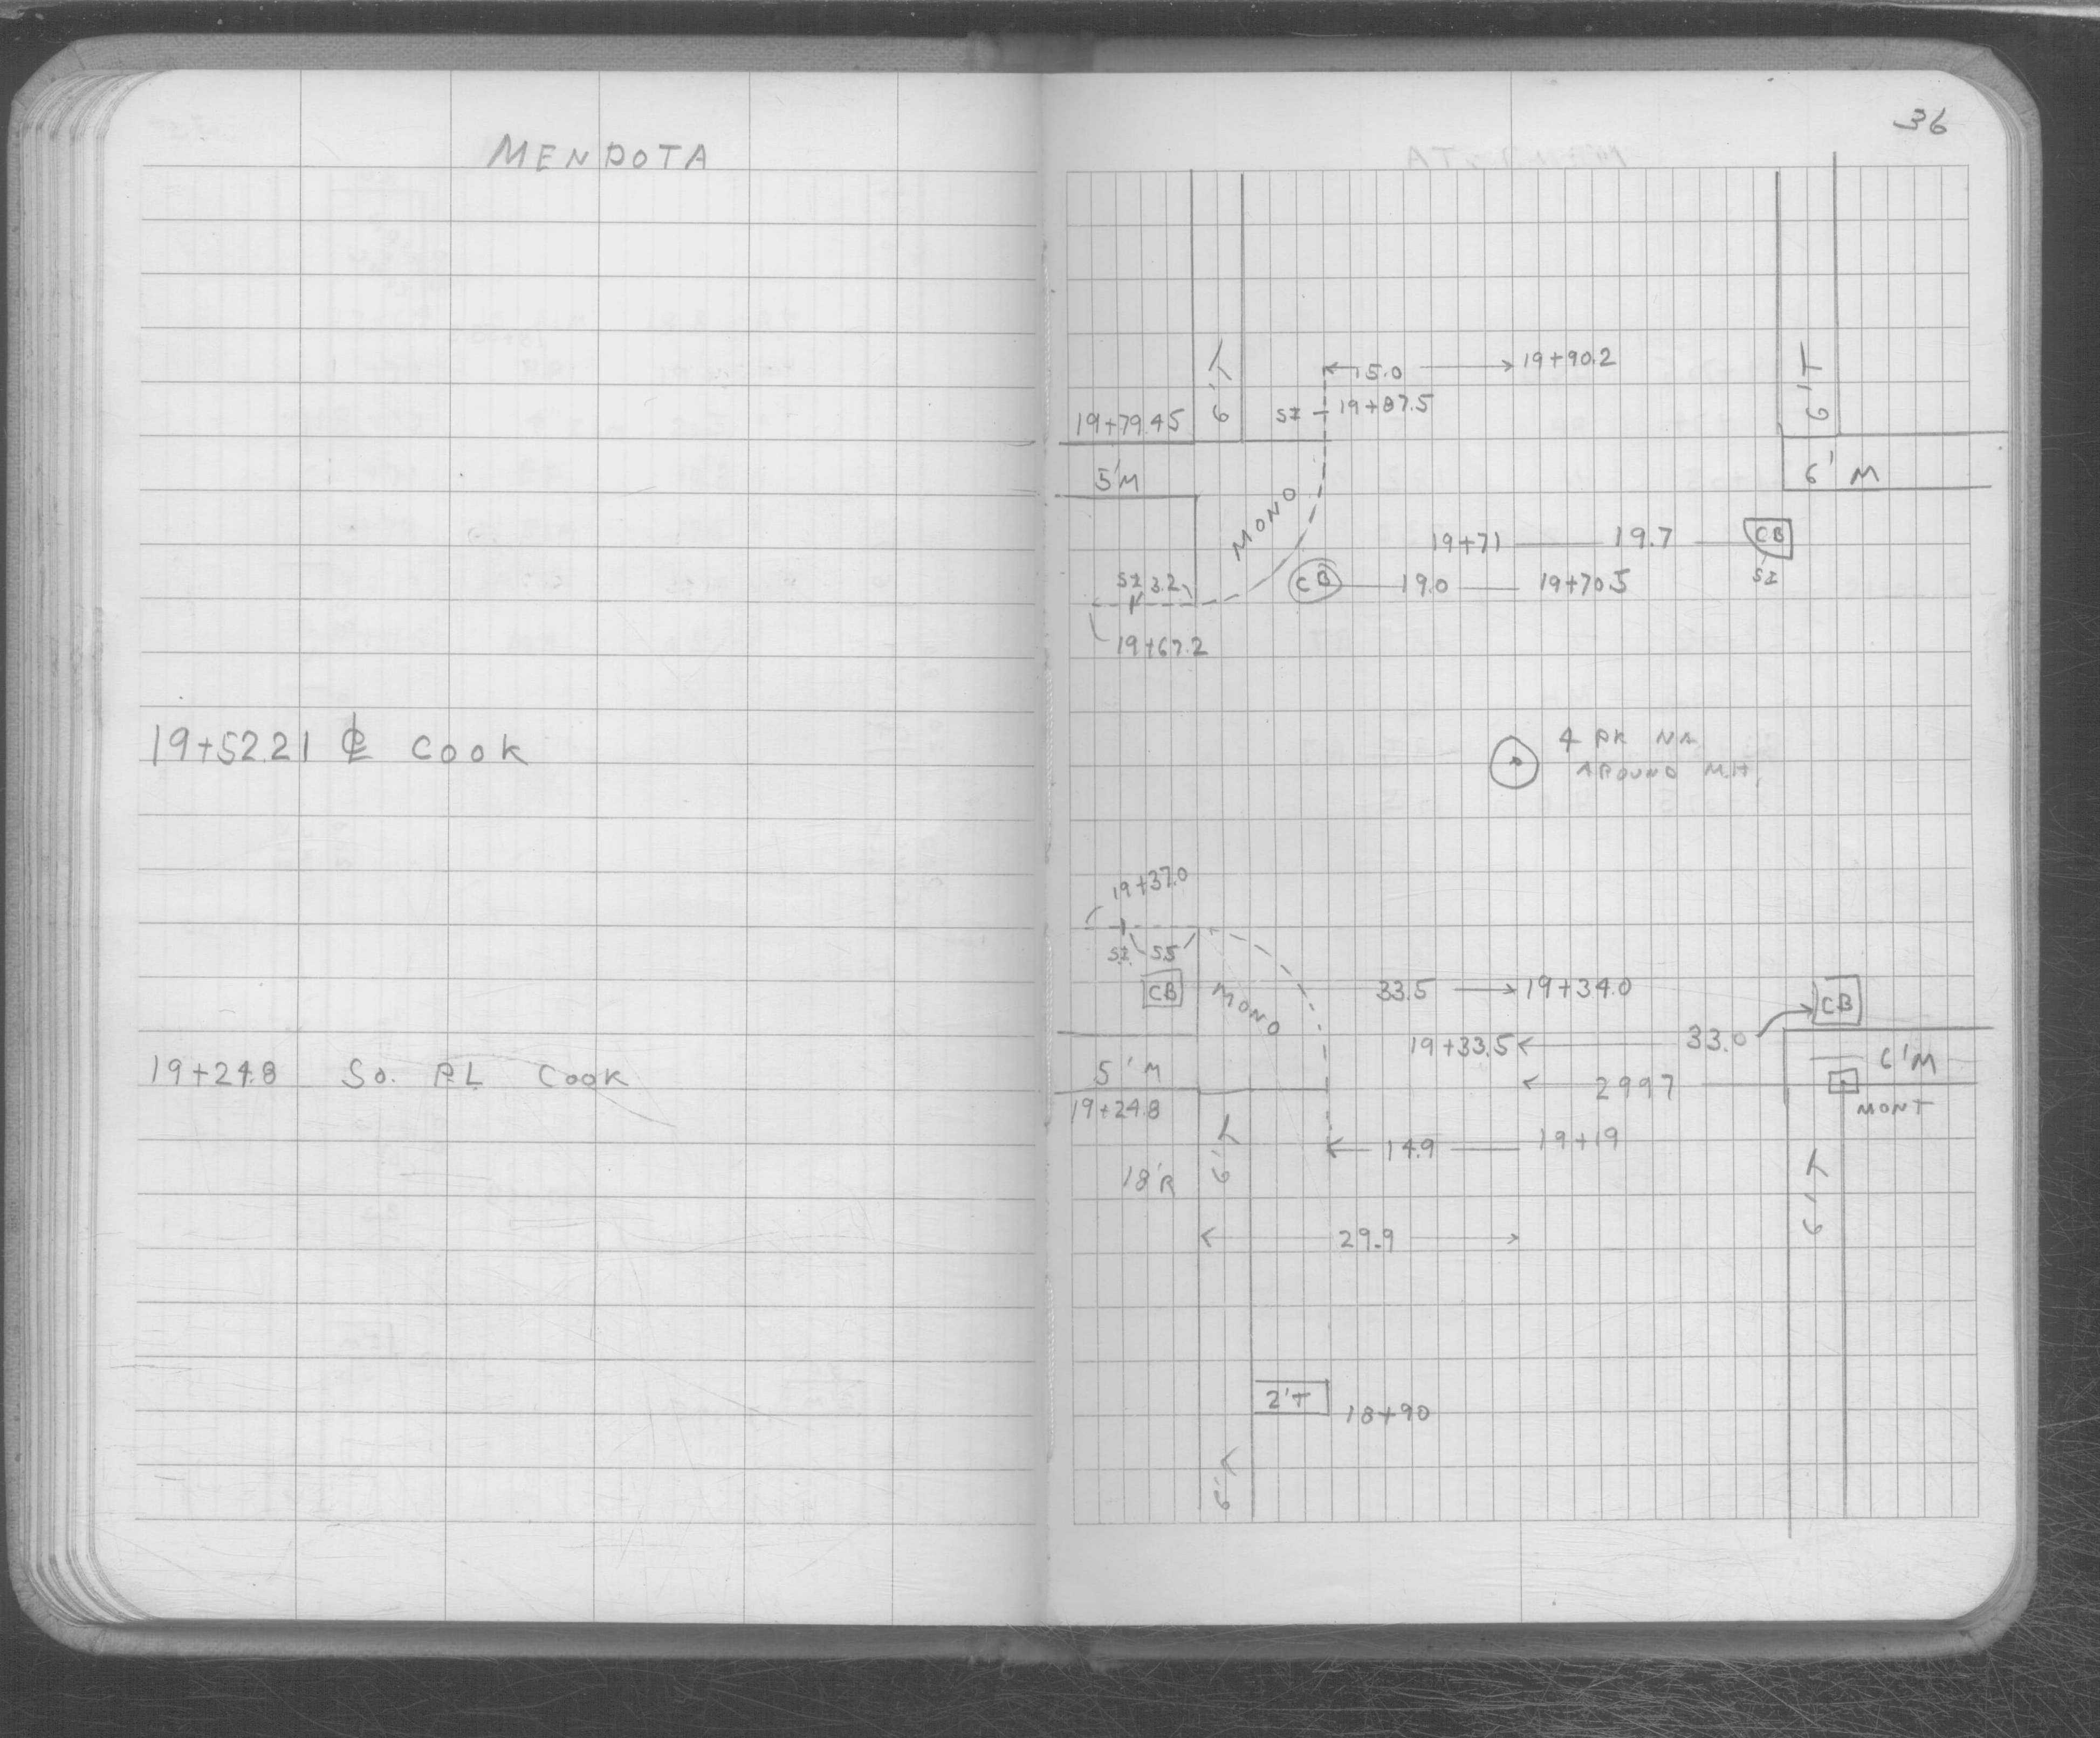 MENDOTA
19+52.21 ℄ COOK
19+24.8 So. P.L. COOK
36
15.0 19+90.2
6'T
6'T
SI 19+87.5
19+79.45
5'M
6' M
MONO
19+71 19.7 CB
SI
SI 3.2
CB 19.0 19+70.5
19+67.2
4 PK NA
AROUND M.H.
19+37.0
SI 5.5
CB
MONO
33.5 19+34.0
CB
19+33.5 33.0
6'M
5'M
29.97
MONT
19+24.8
6'T
14.9 19+19
18'R
6'T
29.9
2'T 18+90
6'T